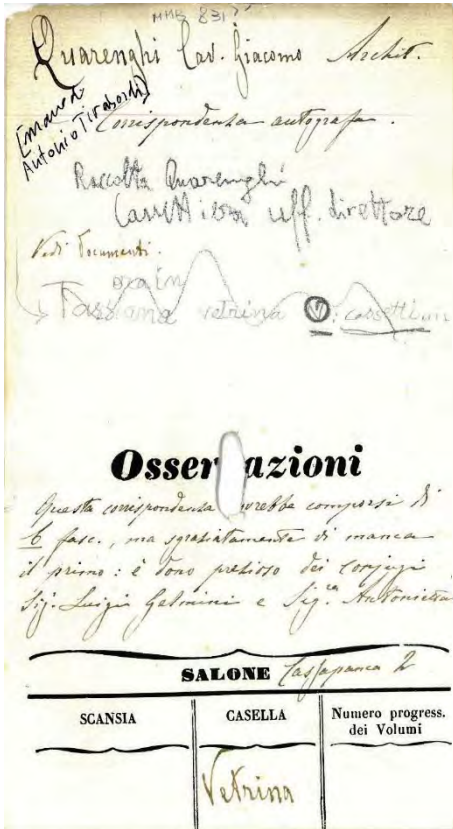 MMB 831
Quarenghi Cav. Giacomo Archit.
[mano di
Antonio Tiraboschi]
Corrispondenza autografa.
Raccolta Quarenghi
uff. direttore
Vedi Documenti.
Tassiana vetrina V. cassetti
Osservazioni
Questa corrispondenza dovrebbe comporsi di
6 fasc., ma sgraziatamente di manca
il primo: è dono prezioso dei conjugi
Sig. Luigi Gelmini e Sig.ra Antonietta
SALONE Cassapanca 2
SCANSIA CASELLA Numero progress.
dei Volumi
Vetrina